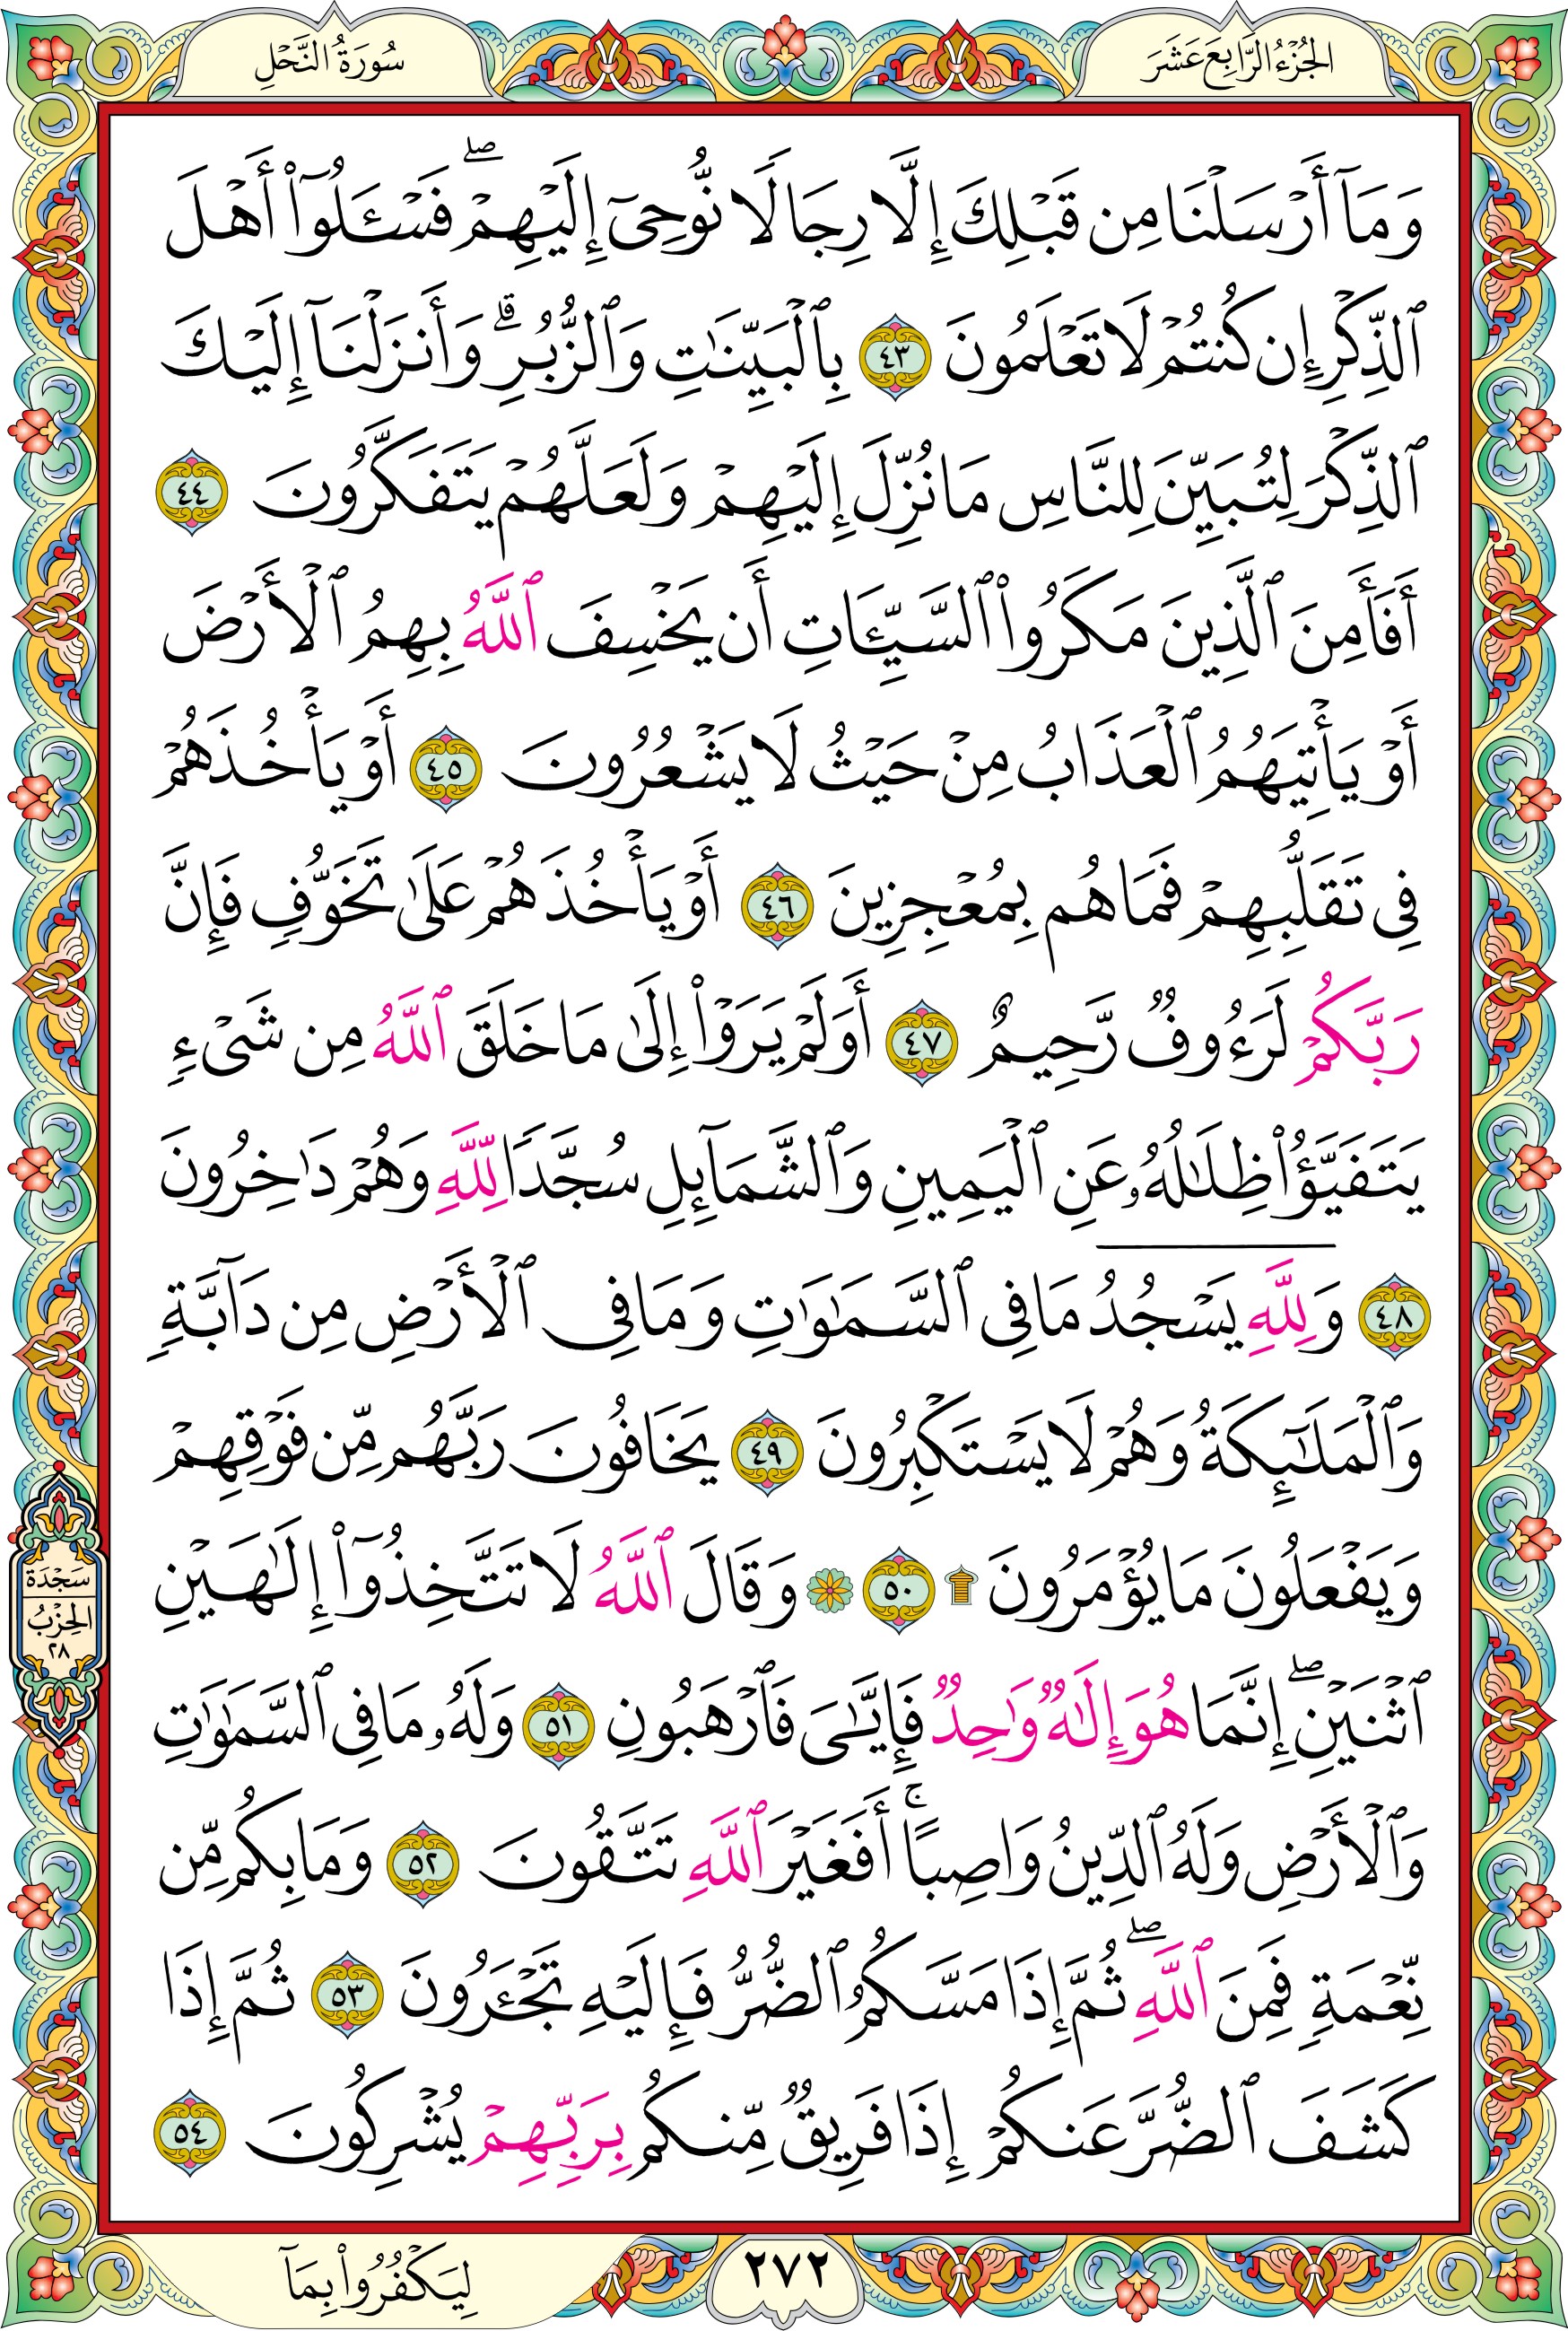 الجُزْءُ الرَّابِعَ عَشَرَ
سُورَةُ النَّحْلِ
وَمَآ أَرْسَلْنَا مِن قَبْلِكَ إِلَّا رِجَالًا نُّوحِىٓ إِلَيْهِمْ ۖ فَسْـَٔلُوٓا۟ أَهْلَ
ٱلذِّكْرِ إِن كُنتُمْ لَا تَعْلَمُونَ ٤٣ بِٱلْبَيِّنَـٰتِ وَٱلزُّبُرِ ۗ وَأَنزَلْنَآ إِلَيْكَ
ٱلذِّكْرَ لِتُبَيِّنَ لِلنَّاسِ مَا نُزِّلَ إِلَيْهِمْ وَلَعَلَّهُمْ يَتَفَكَّرُونَ ٤٤
أَفَأَمِنَ ٱلَّذِينَ مَكَرُوا۟ ٱلسَّيِّـَٔاتِ أَن يَخْسِفَ ٱللَّهُ بِهِمُ ٱلْأَرْضَ
أَوْ يَأْتِيَهُمُ ٱلْعَذَابُ مِنْ حَيْثُ لَا يَشْعُرُونَ ٤٥ أَوْ يَأْخُذَهُمْ
فِى تَقَلُّبِهِمْ فَمَا هُم بِمُعْجِزِينَ ٤٦ أَوْ يَأْخُذَهُمْ عَلَىٰ تَخَوُّفٍ فَإِنَّ
رَبَّكُمْ لَرَءُوفٌ رَّحِيمٌ ٤٧ أَوَلَمْ يَرَوْا۟ إِلَىٰ مَا خَلَقَ ٱللَّهُ مِن شَىْءٍ
يَتَفَيَّؤُا۟ ظِلَـٰلُهُۥ عَنِ ٱلْيَمِينِ وَٱلشَّمَآئِلِ سُجَّدًا لِلَّهِ وَهُمْ دَٰخِرُونَ
٤٨ وَلِلَّهِ يَسْجُدُ مَا فِى ٱلسَّمَـٰوَٰتِ وَمَا فِى ٱلْأَرْضِ مِن دَآبَّةٍ
وَٱلْمَلَـٰٓئِكَةُ وَهُمْ لَا يَسْتَكْبِرُونَ ٤٩ يَخَافُونَ رَبَّهُم مِّن فَوْقِهِمْ
وَيَفْعَلُونَ مَا يُؤْمَرُونَ ۩ ٥٠ ۞ وَقَالَ ٱللَّهُ لَا تَتَّخِذُوٓا۟ إِلَـٰهَيْنِ
ٱثْنَيْنِ ۖ إِنَّمَا هُوَ إِلَـٰهٌ وَٰحِدٌ فَإِيَّـٰىَ فَٱرْهَبُونِ ٥١ وَلَهُۥ مَا فِى ٱلسَّمَـٰوَٰتِ
وَٱلْأَرْضِ وَلَهُ ٱلدِّينُ وَاصِبًا ۚ أَفَغَيْرَ ٱللَّهِ تَتَّقُونَ ٥٢ وَمَا بِكُم مِّن
نِّعْمَةٍ فَمِنَ ٱللَّهِ ۖ ثُمَّ إِذَا مَسَّكُمُ ٱلضُّرُّ فَإِلَيْهِ تَجْـَٔرُونَ ٥٣ ثُمَّ إِذَا
كَشَفَ ٱلضُّرَّ عَنكُمْ إِذَا فَرِيقٌ مِّنكُم بِرَبِّهِمْ يُشْرِكُونَ ٥٤
سَجْدَة
الحِزْبُ
٢٨
٢٧٢
لِيَكْفُرُوا۟ بِمَآ